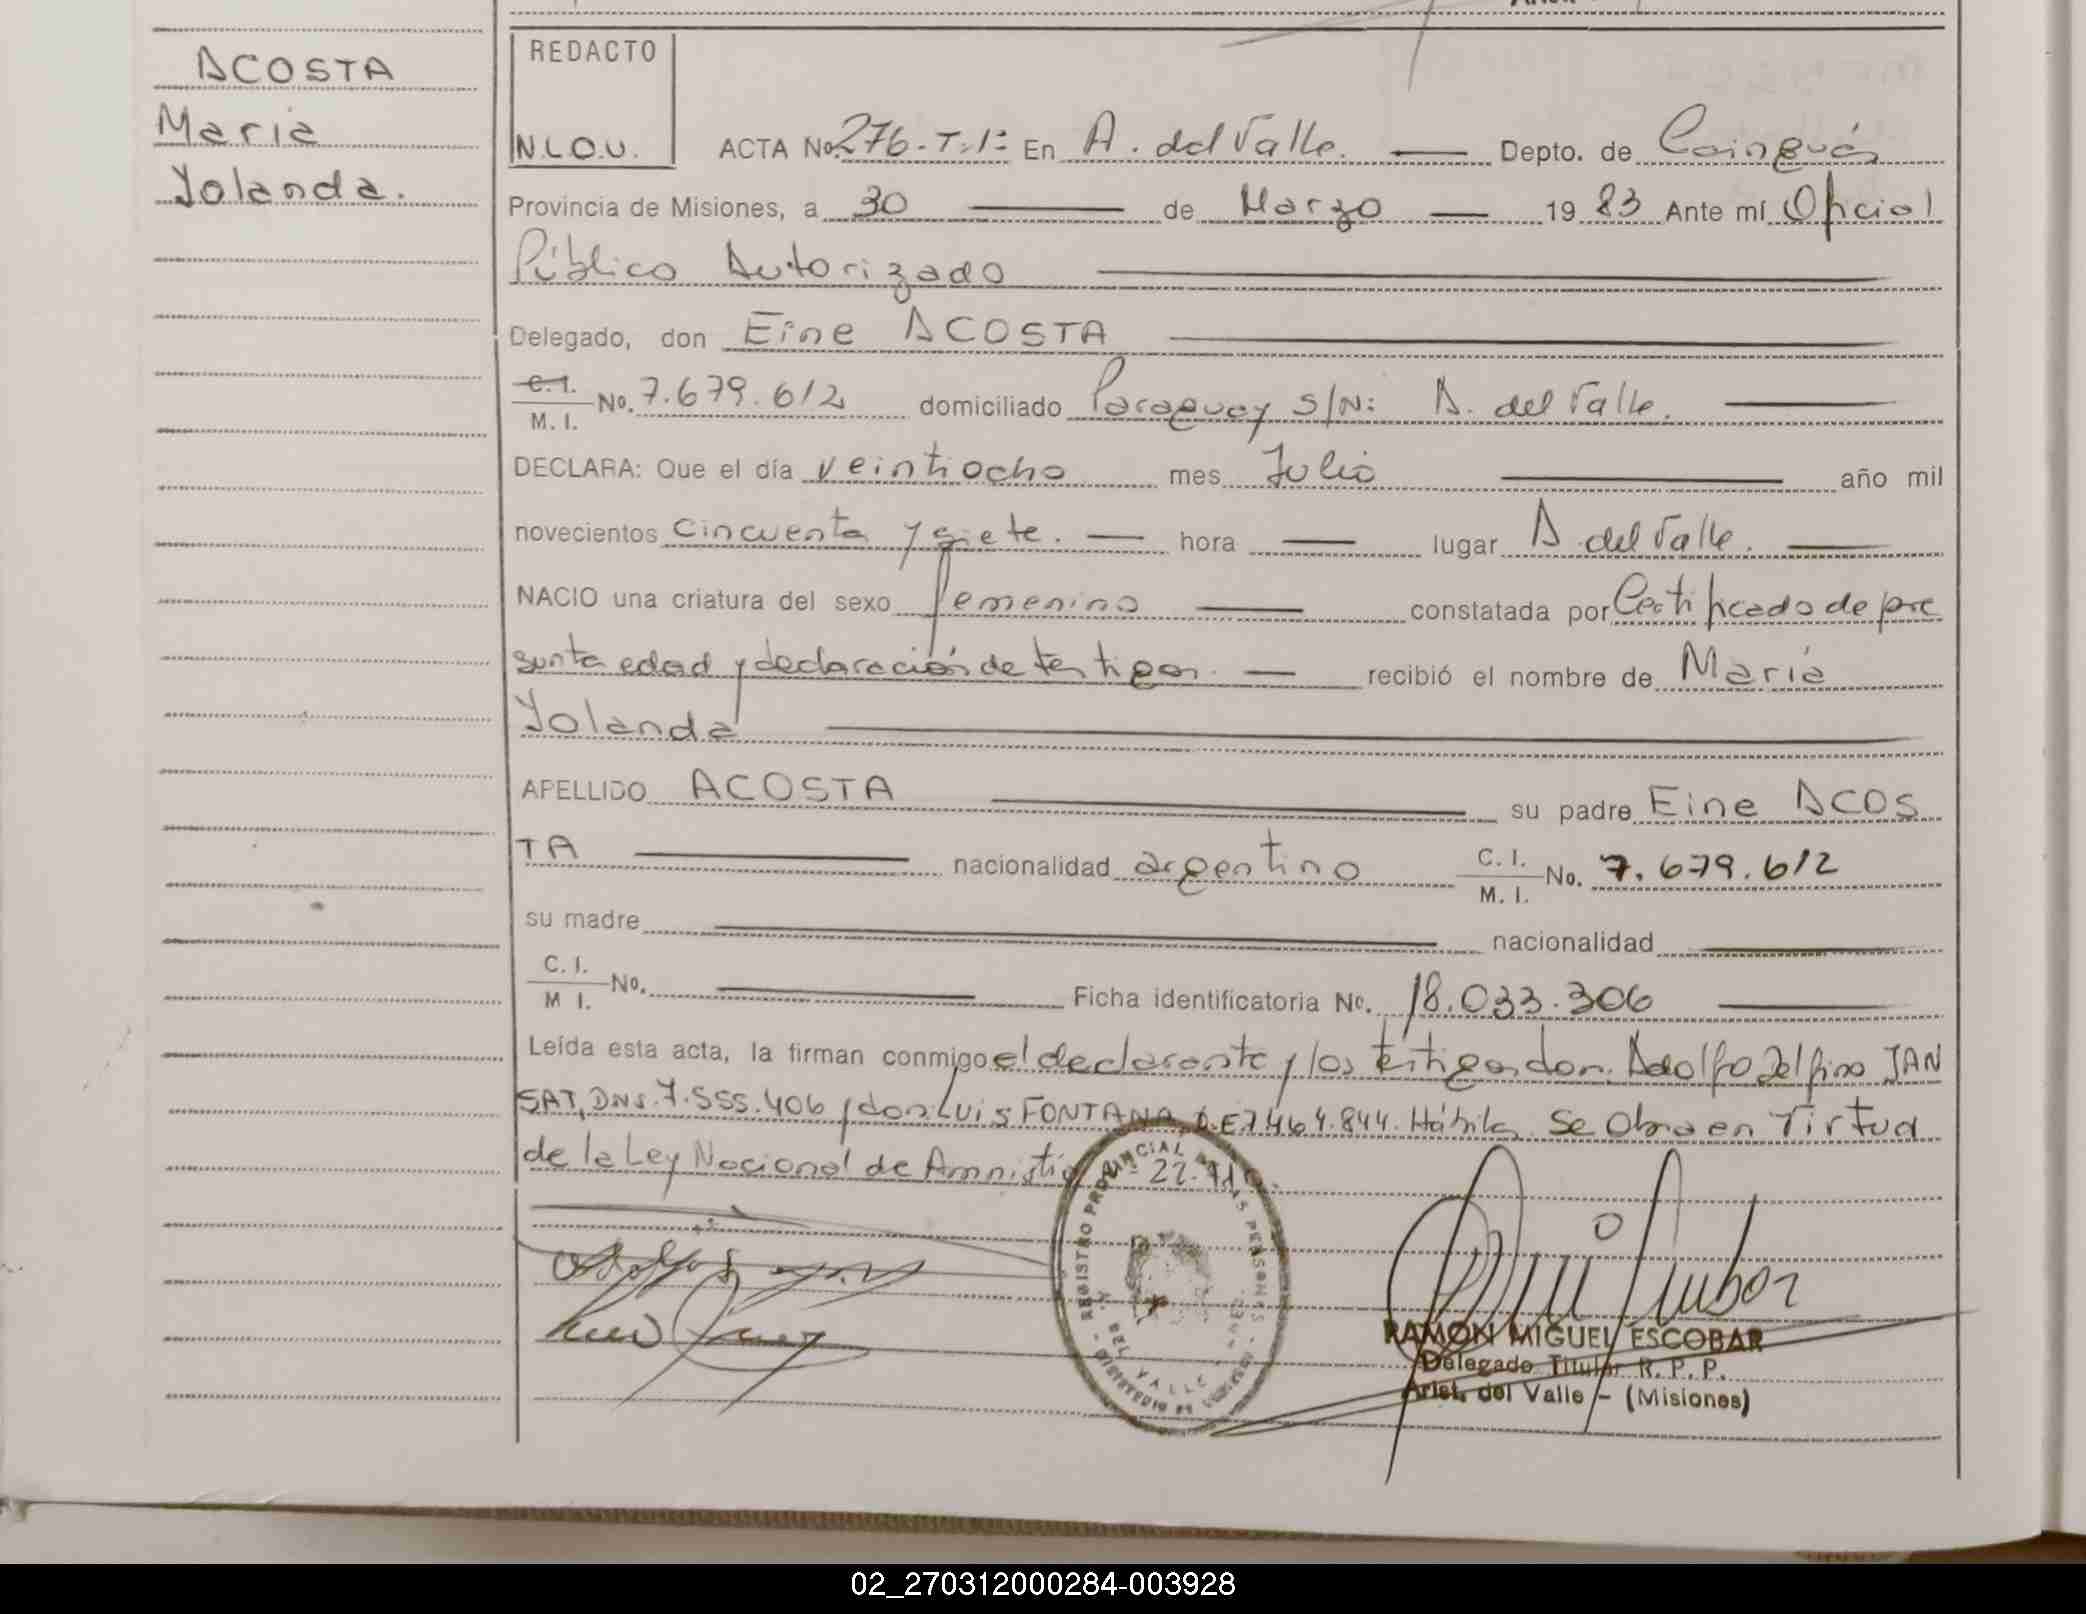 ACOSTA
Maria
Yolanda.
REDACTO
N.L.O.U.
ACTA No. 276-T.1º En A. del Valle. Depto. de Cainguás
Provincia de Misiones, a 30 de Marzo 19 83 Ante mí Oficial
Público Autorizado
Delegado, don Eine ACOSTA
C.I. / M.I. No. 7.679.612 domiciliado Paraguay S/N: A. del Valle.
DECLARA: Que el día veintiocho mes Julio año mil
novecientos cincuenta y siete. hora lugar A. del Valle.
NACIO una criatura del sexo femenino constatada por Certificado de pre
sunta edad y declaración de testigos. recibió el nombre de Maria
Yolanda
APELLIDO ACOSTA su padre Eine ACOS
TA nacionalidad argentino C.I. / M.I. No. 7.679.612
su madre nacionalidad
C.I. / M I. No. Ficha identificatoria No. 18.033.306
Leída esta acta, la firman conmigo el declarante y los testigos don. Adolfo Delfino JAN
SAT, DNI. 7.555.406 y don Luis FONTANA, 7.464.844. Hábiles. Se Obra en Virtud
de la Ley Nacional de Amnistía 22.
REGISTRO PROVINCIAL DE LAS PERSONAS
VALLE
RAMON MIGUEL ESCOBAR
Delegado Titular R. P. P.
Arist. del Valle - (Misiones)
02_270312000284-003928